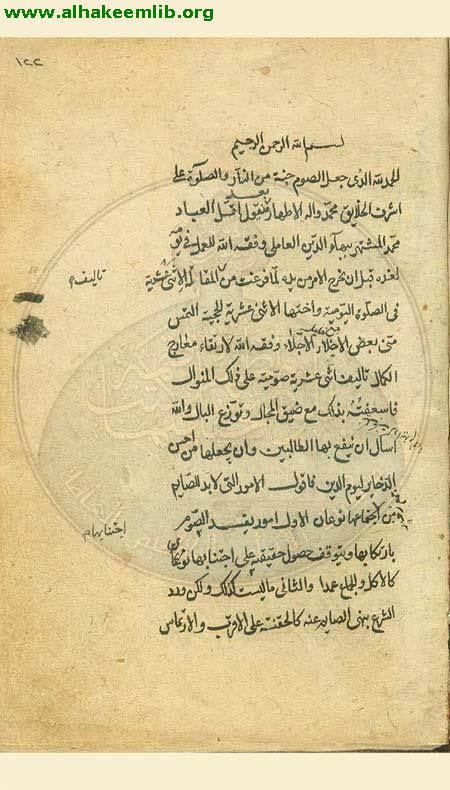 www.alhakeemlib.org
١٢٢
بسم الله الرحمن الرحيم
الحمد لله الذى جعل الصوم جنة من النار والصلوة على
اشرف الخلايق محمد واله الاطهار وبعد فيقول اقل العباد
محمد المشتهر ببهاء الدين العاملى وفقه الله للعمل فى يومه
لغده قبل ان يخرج الامر من يده لما فرغت من تاليف المقالة الاثنى عشرية
فى الصلوة اليومية واختها الاثنى عشرية الحجية التمس
منى بعض الاخلاء الاجلاء وفقه الله لارتقاء معارج
الكمال تاليف اثنى عشرية صومية على ذلك المنوال
فاسعفته بذلك مع ضيق المجال وتوزع البال والله
اسأل ان ينفع بها الطالبين وان يجعلها من احسن
الذخاير ليوم الدين فاقول الامور التى لابد للصايم
من اجتنابها نوعان الاول امور يفسد الصوم
بارتكابها ويتوقف حصول حقيقته على اجتنابها
كالاكل والجماع عمدا والثانى ما ليست كذلك ولكن ورد
الشرع بنهى الصايم عنه كالحقنة على الاقرب والارتماس